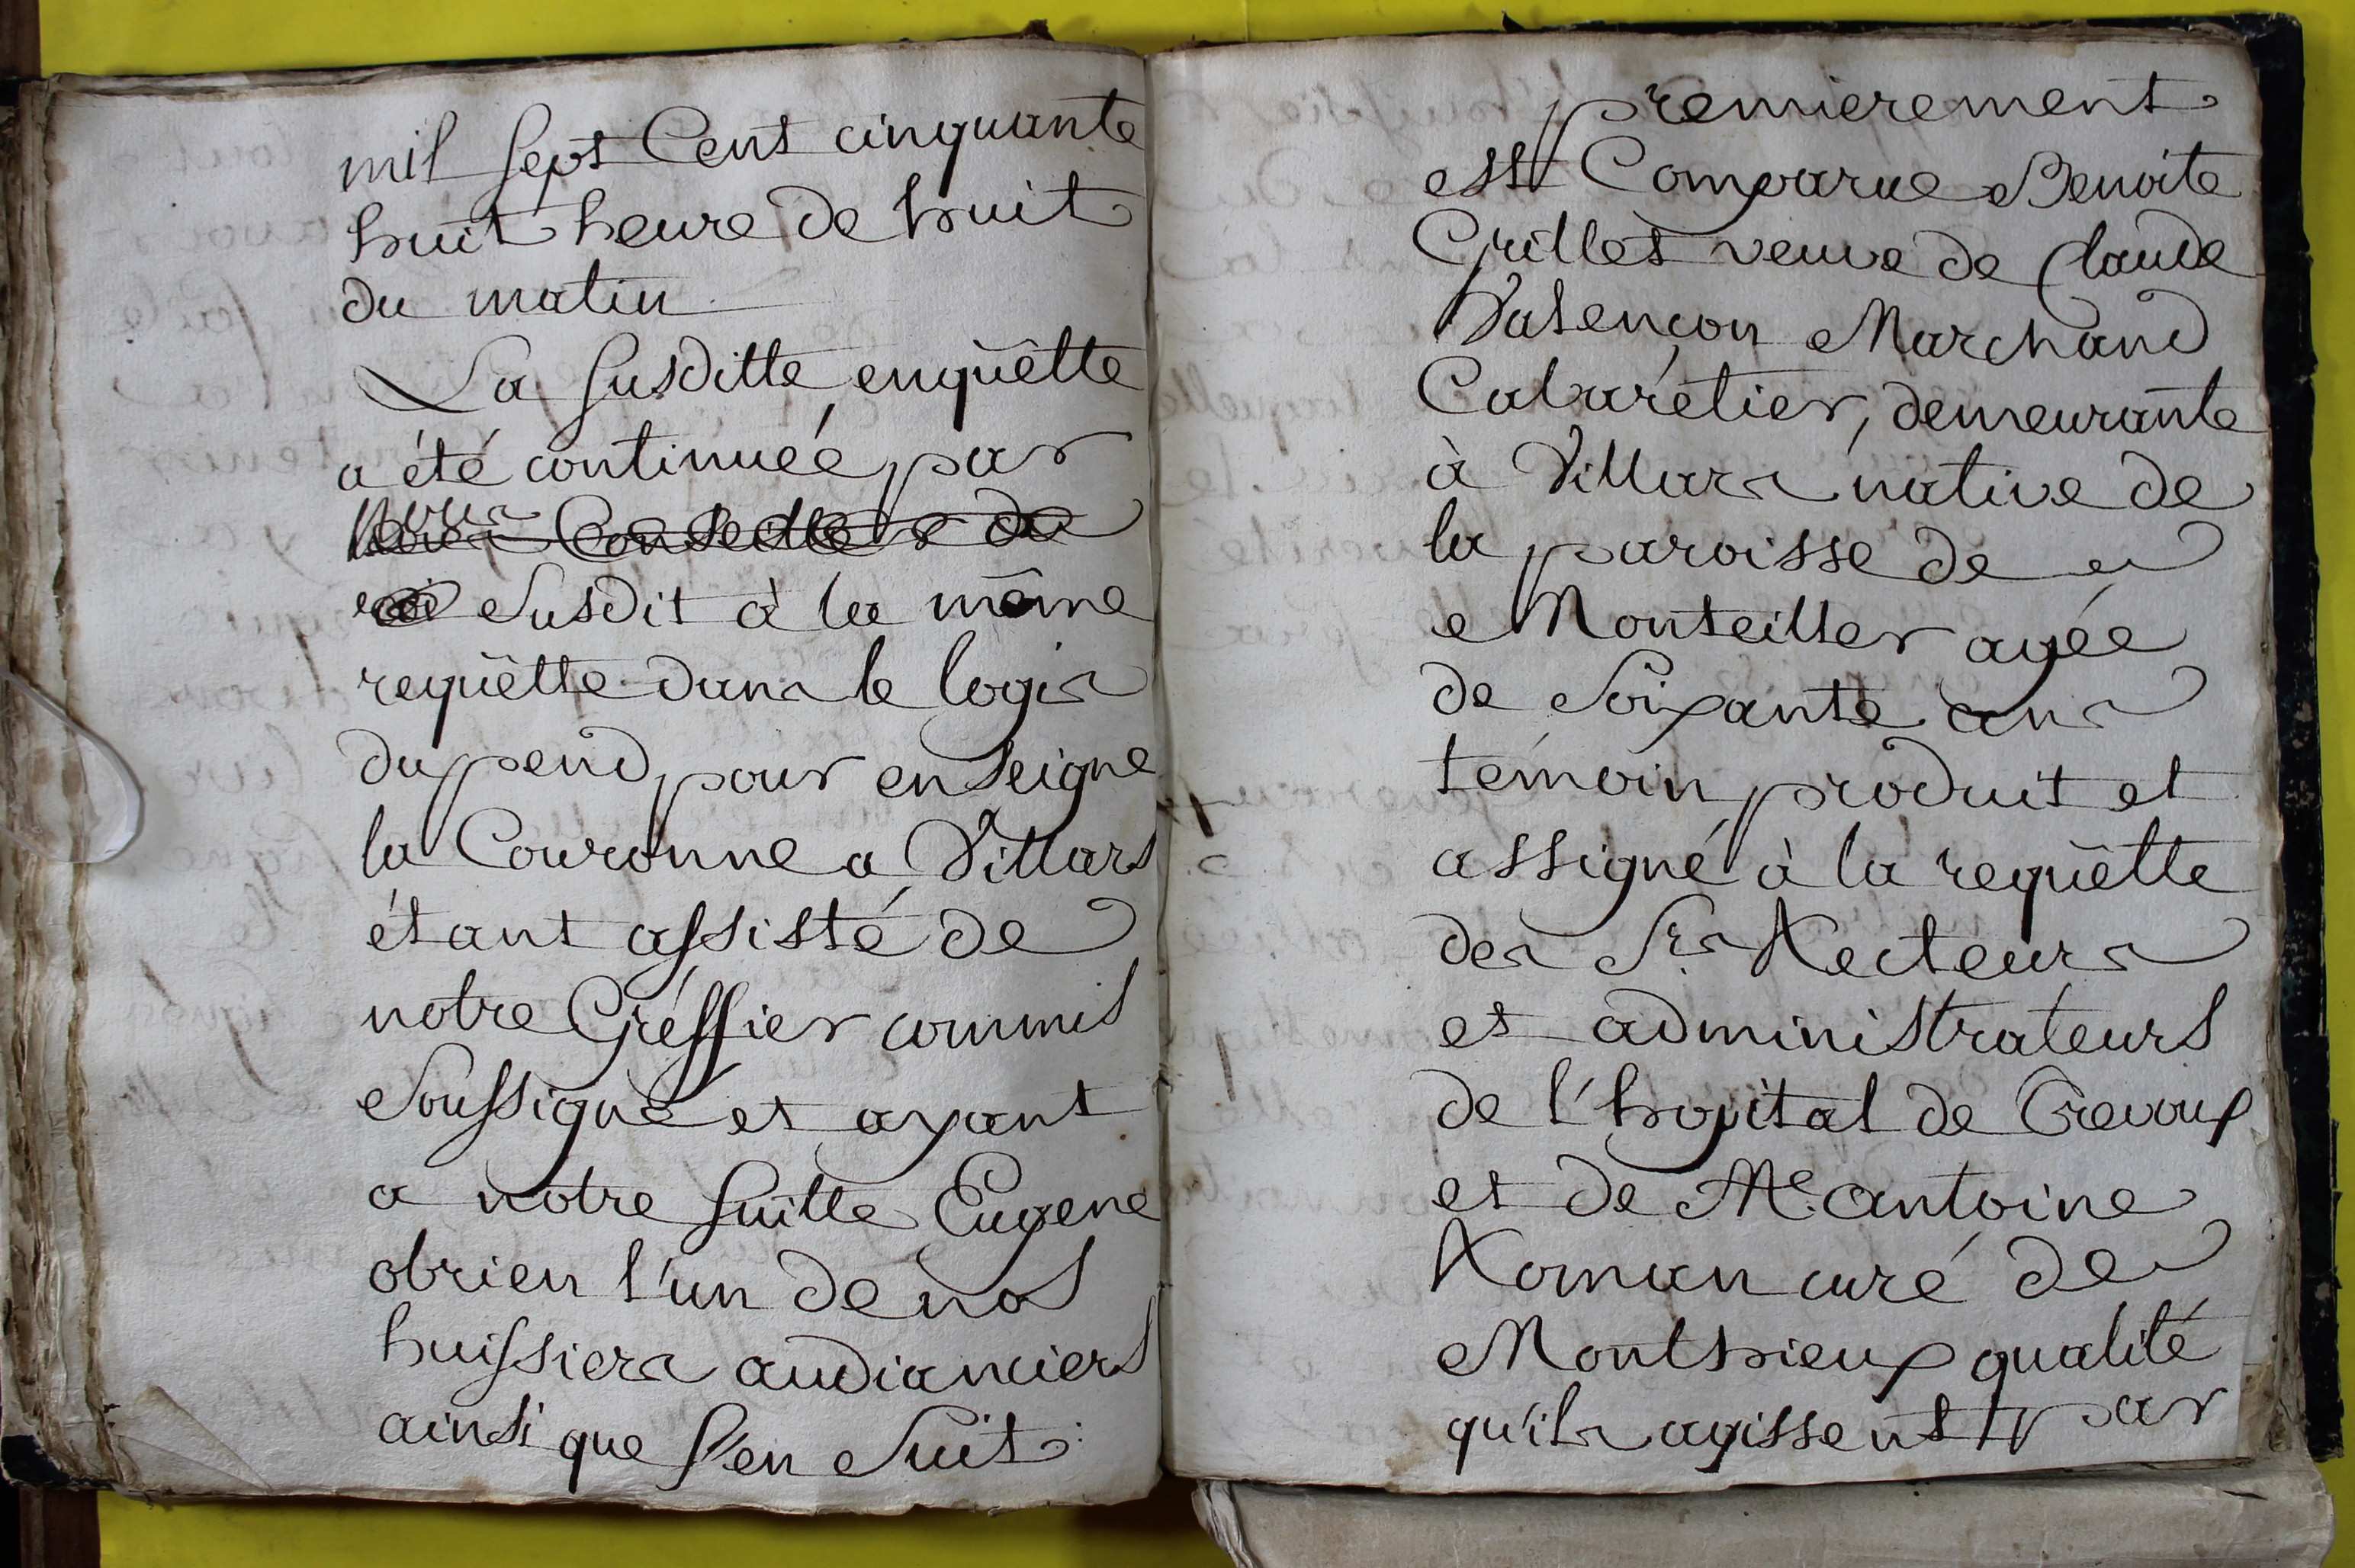 mil sept Cent cinquante
huit heure de huit
du matin
La susditte enquêtte
a été continuée par
nous Conseiller du
roi susdit à la même
requêtte dans le logis
du pend pour enseigne
la Couronne a Villars
étant assisté de
notre Gréffier commis
soussigné et ayant
a notre suitte Eugene
obrien l'un de nos
huissiers audianciers
ainsi que s'en suit
premierement
est Comparue Benoite
Grillet veuve de Claude
Valençon Marchand
Cabarétier, demeurante
à Villars native de
la paroisse de
Monteiller agée
de soixante ans
témoin produit et
assigné à la requêtte
des Srs Recteurs
et administrateurs
de l'hopital de Trevoux
et de Me antoine
Roman curé de
Monthieux qualité
qu'ils agissent par